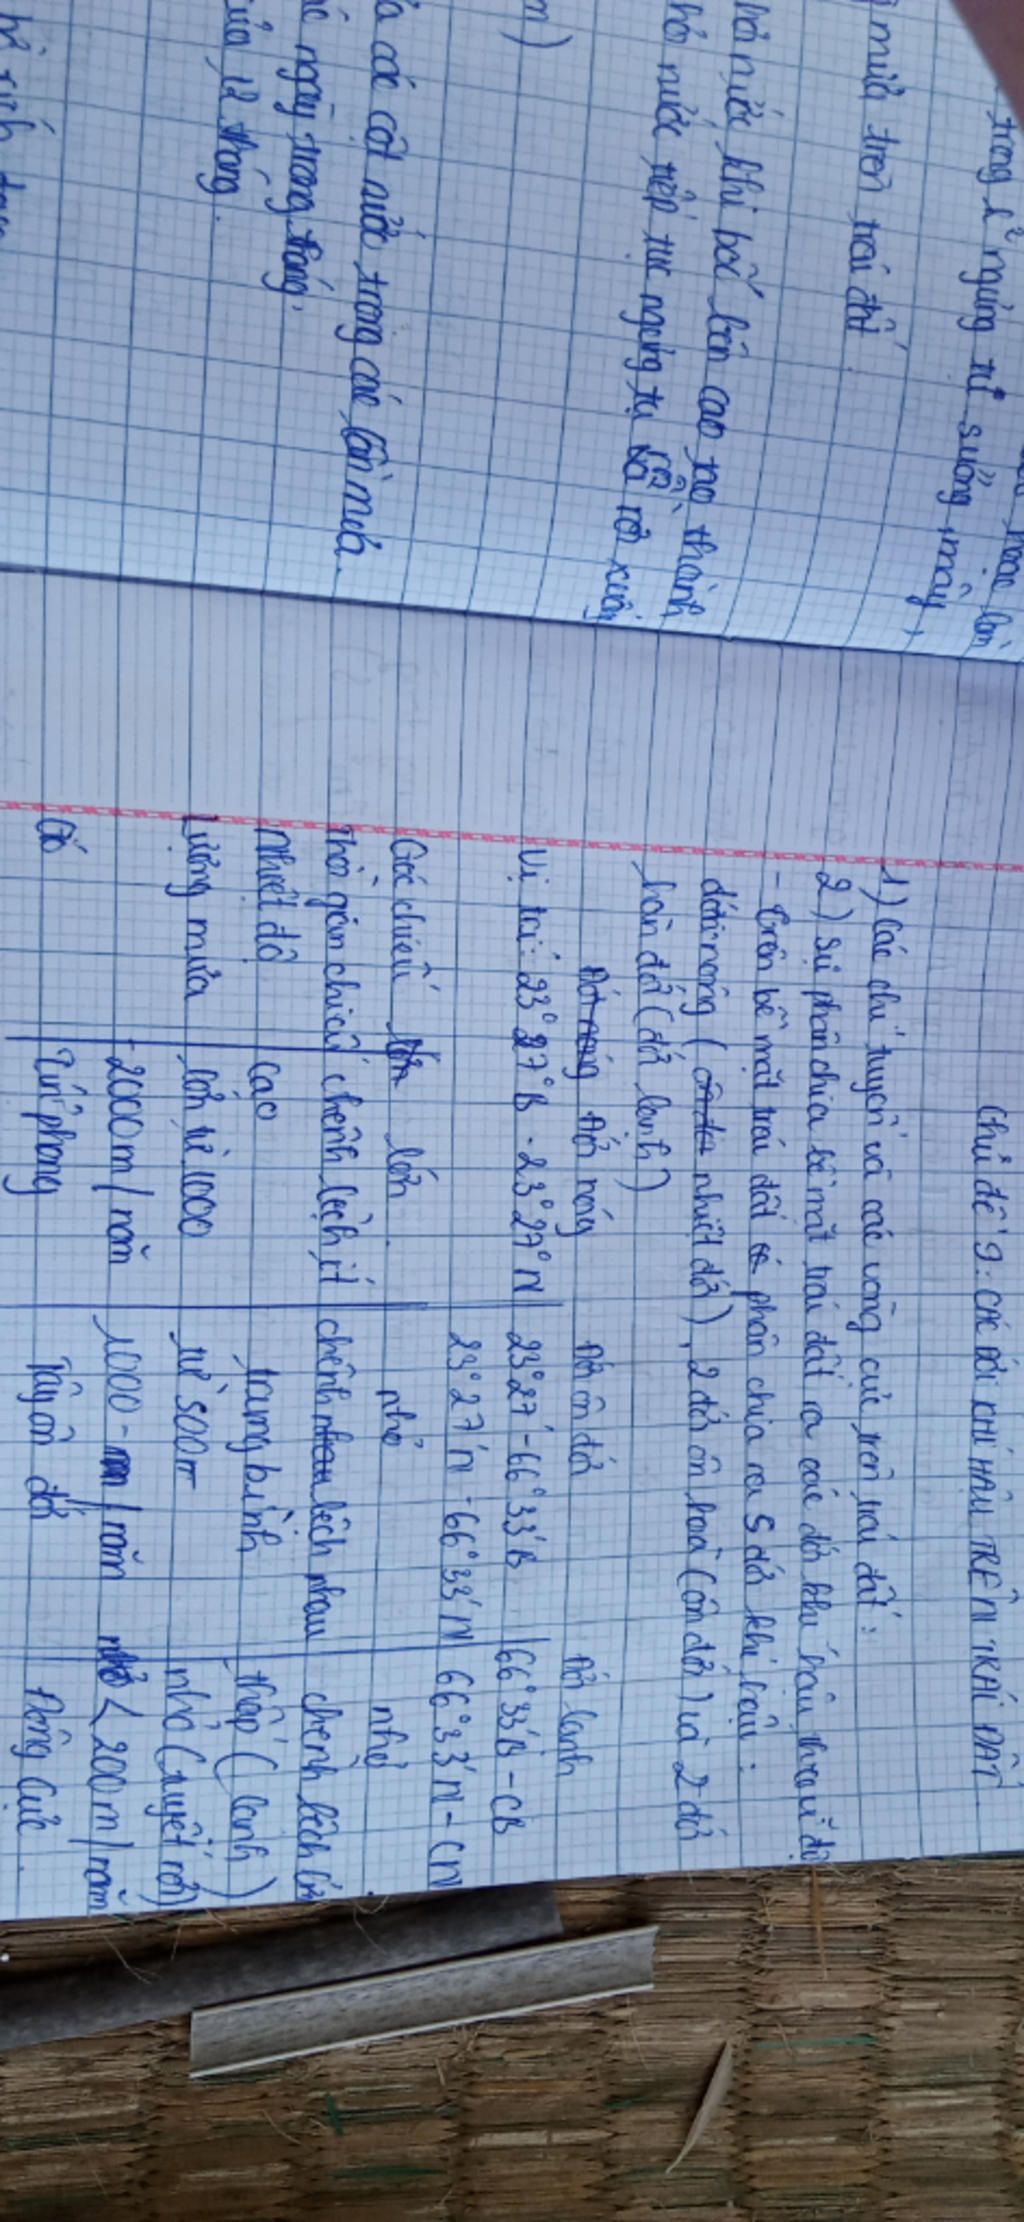 hoặc lớn
trong k² ngưng tụ sương, mây,
mưa trên trái đất.
hơi nước khi bốc lên cao tạo thành
hơi nước tiếp tục ngưng tụ rồi rơi xuống
m)
là các cột nước trong các lần mưa.
ngày trong tháng.
của 12 tháng.
Chủ đề 9: CÁC ĐỚI KHÍ HẬU TRÊN TRÁI ĐẤT.
1) Các chí tuyến và các vòng cực trên trái đất:
2) Sự phân chia bề mặt trái đất ra các đới khí hậu theo vĩ độ
- trên bề mặt trái đất phân chia ra 5 đới khí hậu:
đới nóng (nhiệt đới), 2 đới ôn hoà (ôn đới) và 2 đới
hàn đới (đới lạnh)
Đới nóng Đới nóng Đới ôn đới Đới lạnh
Vị trí: 23° 27° B - 23° 27° N 23° 27' - 66° 33' B 66° 33' B - CB
23° 27' N - 66° 33' N 66° 33' N - CN
Góc chiếu lớn lớn. nhỏ nhỏ
Thời gian chiếu chênh lệch ít chênh nhau lệch nhau chênh lệch lớn
Nhiệt độ cao trung bình thấp (lạnh)
Lượng mưa lớn từ 1000 từ 500m nhỏ (tuyết rơi)
- 2000m/năm 1000 - /năm < 200m/năm
Gió Tín phong Tây ôn đới Đông Cực.